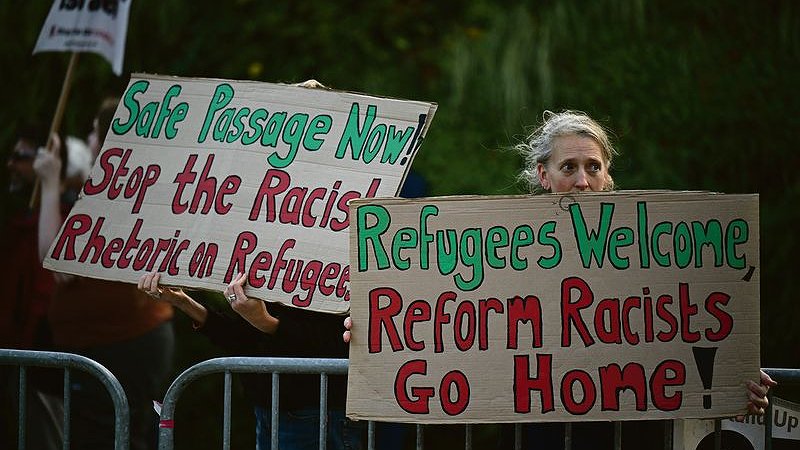 Israel
Safe Passage Now!
Stop the Racist
Rhetoric on Refugee
Refugees Welcome,
Reform Racists
Go Home!
tand Up